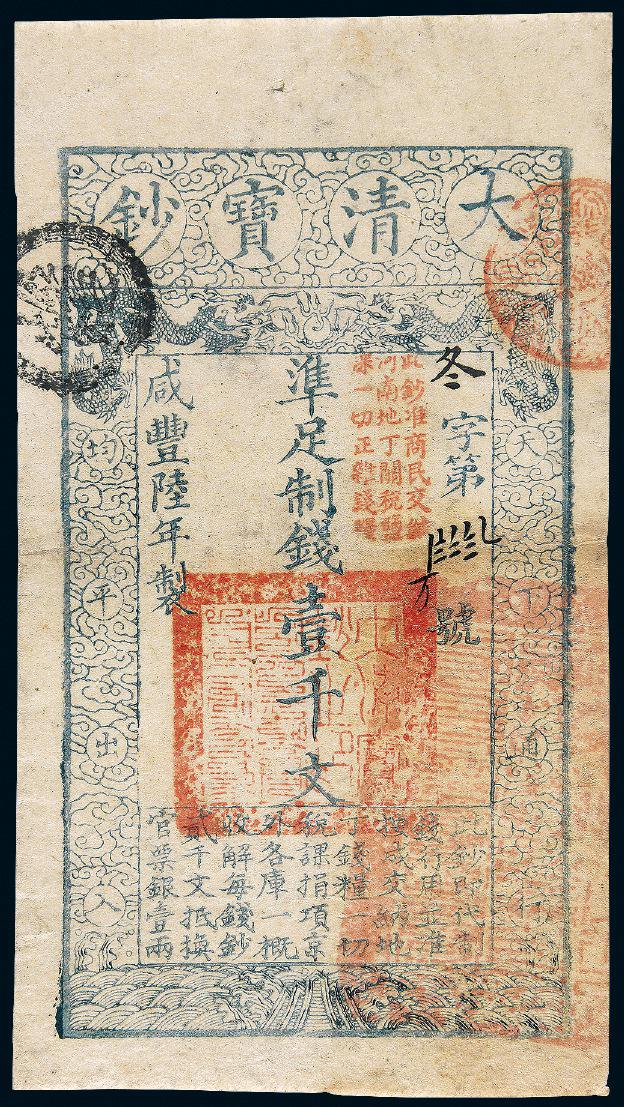 大清寶鈔
天下通行
冬字第
万號
此鈔准商民交納
河南地丁關稅鹽
課一切正雜錢糧
準足制錢壹千文
咸豐陸年製
均平出入
此鈔即代制
錢行用並准
按成交納地
丁錢糧一切
稅課捐項京
外各庫一概
收解每錢鈔
貳千文抵換
官票銀壹兩